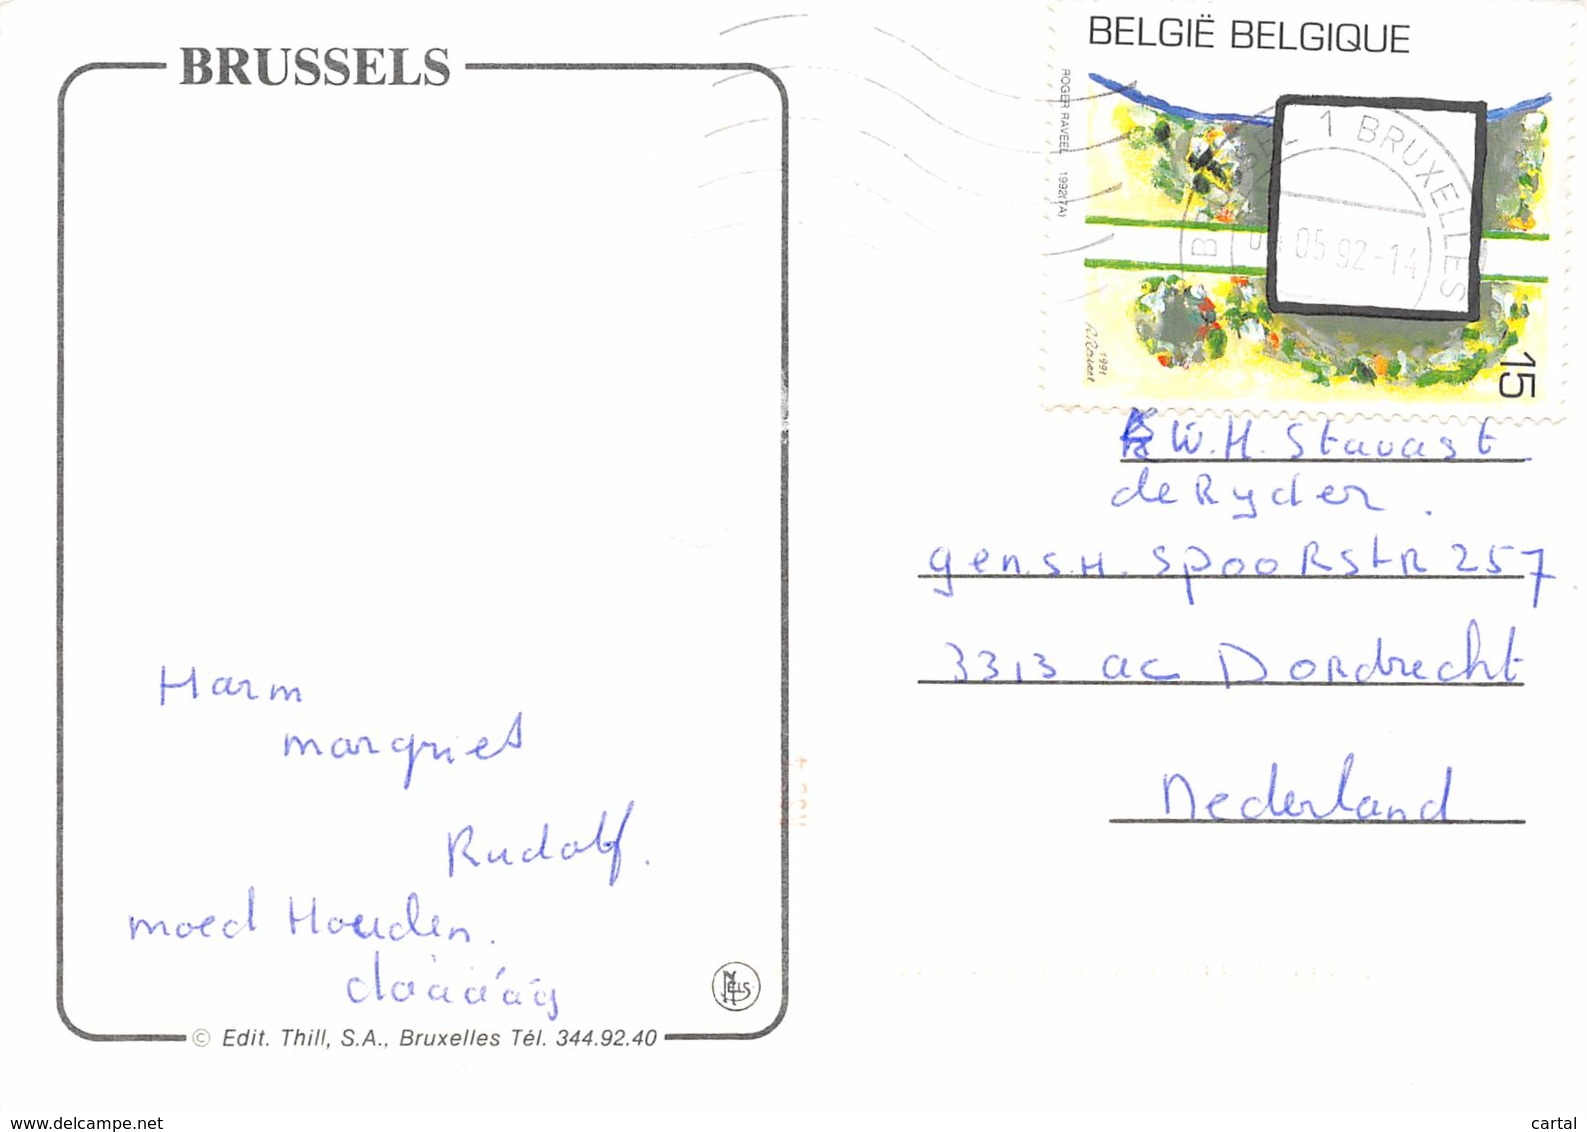 BRUSSELS
BELGIË BELGIQUE
ROGER RAVEEL 1992(7A)
1 BRUXELLES
05 92-14
1991
15
W.H. Stavast
de Ryder.
gen.S.H. SpooRstR 257
3313 ac Dordrecht
Nederland
Harm
margriet
Rudolf.
moed Houden.
NELS
© Edit. Thill, S.A., Bruxelles Tél. 344.92.40
www.delcampe.net
cartal